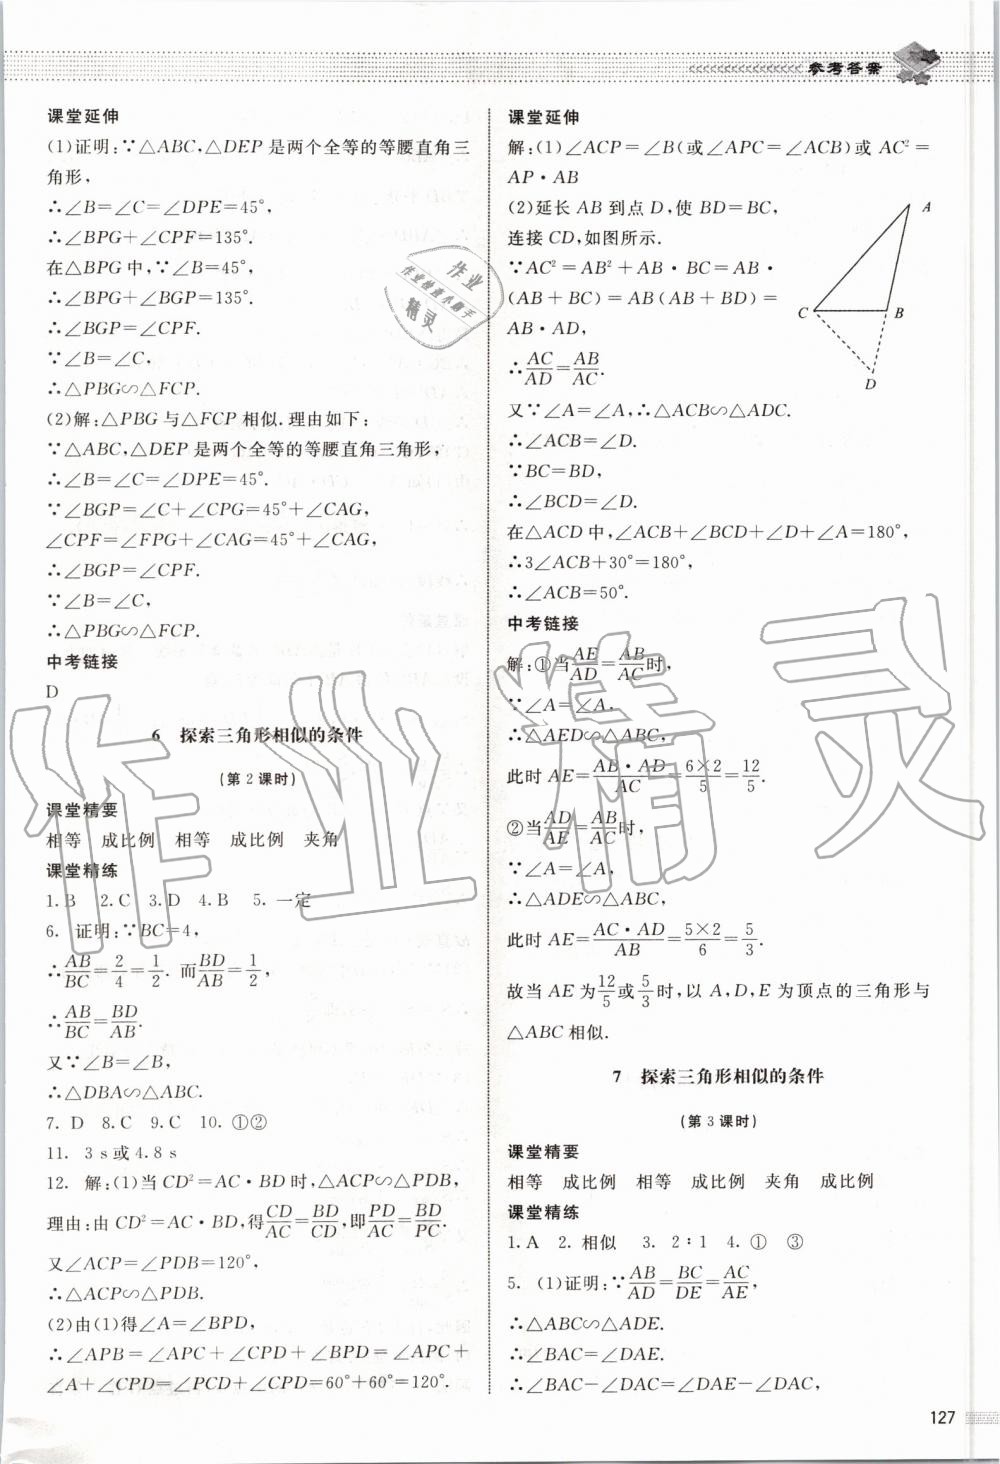 参考答案
课堂延伸
(1)证明:∵△ABC,△DEP是两个全等的等腰直角三
角形,
∴∠B=∠C=∠DPE=45°,
∴∠BPG+∠CPF=135°.
在△BPG中,∵∠B=45°,
∴∠BPG+∠BGP=135°.
∴∠BGP=∠CPF.
∵∠B=∠C,
∴△PBG∽△FCP.
(2)解:△PBG与△FCP相似.理由如下:
∵△ABC,△DEP是两个全等的等腰直角三角形,
∴∠B=∠C=∠DPE=45°.
∵∠BGP=∠C+∠CPG=45°+∠CAG,
∠CPF=∠FPG+∠CAG=45°+∠CAG,
∴∠BGP=∠CPF.
∵∠B=∠C,
∴△PBG∽△FCP.
中考链接
D
6 探索三角形相似的条件
(第2课时)
课堂精要
相等 成比例 相等 成比例 夹角
课堂精练
1.B 2.C 3.D 4.B 5. 一定
6. 证明:∵BC=4,
∴AB/BC=2/4=1/2. 而BD/AB=1/2,
∴AB/BC=BD/AB.
又∵∠B=∠B,
∴△DBA∽△ABC.
7. D 8.C 9.C 10. ①②
11. 3 s或4.8 s
12. 解:(1)当CD²=AC·BD时,△ACP∽△PDB,
理由:由CD²=AC·BD,得CD/AC=BD/CD,即PD/AC=BD/PC.
又∠ACP=∠PDB=120°,
∴△ACP∽△PDB.
(2)由(1)得∠A=∠BPD,
∴∠APB=∠APC+∠CPD+∠BPD=∠APC+
∠A+∠CPD=∠PCD+∠CPD=60°+60°=120°.
课堂延伸
解:(1)∠ACP=∠B(或∠APC=∠ACB)或AC²=
AP·AB
(2)延长AB到点D,使BD=BC,
连接CD,如图所示.
∵AC²=AB²+AB·BC=AB·
(AB+BC)=AB(AB+BD)=
AB·AD,
∴AC/AD=AB/AC.
又∵∠A=∠A,∴△ACB∽△ADC.
∴∠ACB=∠D.
∵BC=BD,
∴∠BCD=∠D.
在△ACD中,∠ACB+∠BCD+∠D+∠A=180°,
∴3∠ACB+30°=180°,
∴∠ACB=50°.
A
C
B
D
中考链接
解:①当AE/AD=AB/AC时,
∵∠A=∠A,
∴△AED∽△ABC,
此时AE=AB·AD/AC=6×2/5=12/5.
②当AD/AE=AB/AC时,
∵∠A=∠A,
∴△ADE∽△ABC,
此时AE=AC·AD/AB=5×2/6=5/3.
故当AE为12/5或5/3时,以A,D,E为顶点的三角形与
△ABC相似.
7 探索三角形相似的条件
(第3课时)
课堂精要
相等 成比例 相等 成比例 夹角 成比例
课堂精练
1.A 2.相似 3. 2∶1 4. ① ③
5. (1)证明:∵AB/AD=BC/DE=AC/AE,
∴△ABC∽△ADE.
∴∠BAC=∠DAE.
∴∠BAC−∠DAC=∠DAE−∠DAC,
127
作业精灵
作业
精灵